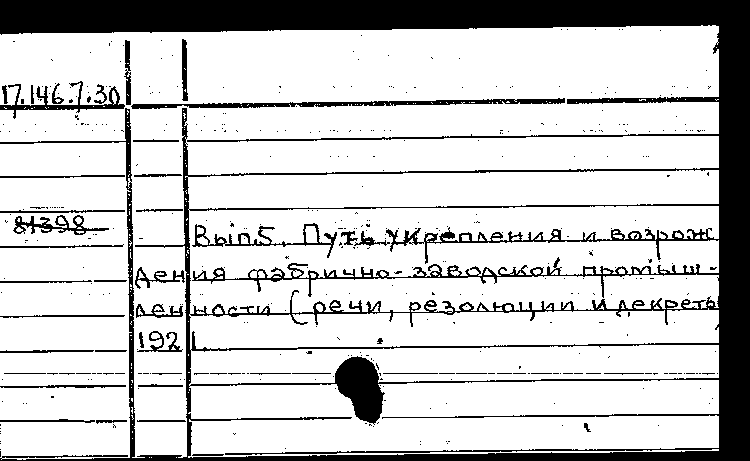 17.146.7.30
81398
Вып.5. Путь укрепления и возрож
дения фабрично-заводской промыш-
ленности (речи, резолюции и декреты
1921.